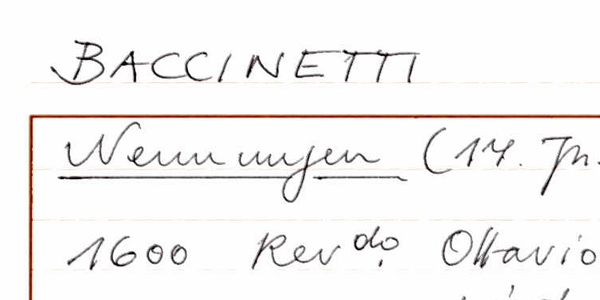 BACCINETTI
Nennungen (17. Jh.
1600 Rev do. Ottavio